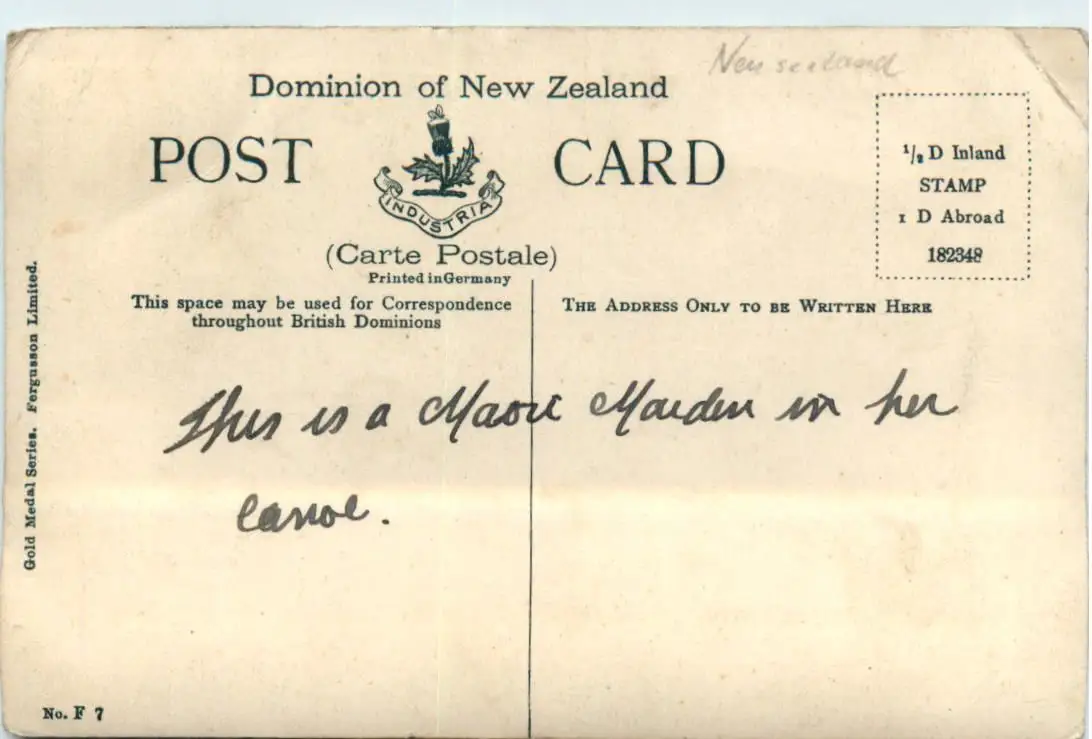 Neuseeland
Dominion of New Zealand
POST CARD
INDUSTRIA
(Carte Postale)
Printed in Germany
1/2 D Inland
STAMP
1 D Abroad
182348
This space may be used for Correspondence
throughout British Dominions
THE ADDRESS ONLY TO BE WRITTEN HERE
This is a Maori Maiden in her
canoe.
Gold Medal Series. Fergusson Limited.
No. F 7